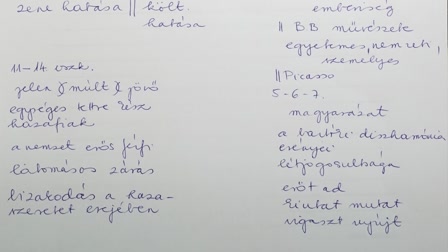 zene hatása || költ.
hatása
11-14 vszk.
jelen múlt jövő
egységes lettre kész
hazafiak
a nemzet erős férfi
látomásos zárás
bizakodás a haza-
szeretet erejében
emberiség
|| BB művészete
egyetemes, nemzeti,
személyes
|| Picasso
5-6-7.
magyarázat
a bartóki diszharmónia
erényei
létjogosultsága
erőt ad
kiutat mutat
vigaszt nyújt